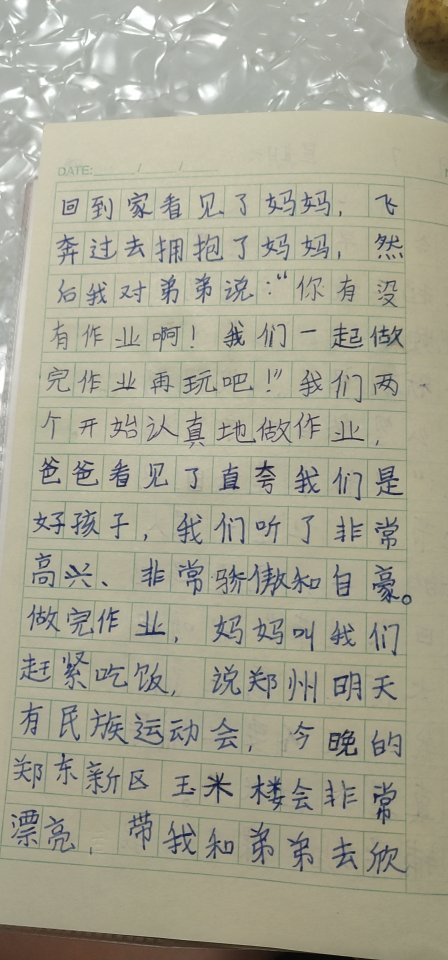 DATE: / /
回到家看见了妈妈，飞
奔过去拥抱了妈妈，然
后我对弟弟说：“你有没
有作业啊！我们一起做
完作业再玩吧！”我们两
个开始认真地做作业，
爸爸看见了直夸我们是
好孩子，我们听了非常
高兴、非常骄傲和自豪。
做完作业，妈妈叫我们
赶紧吃饭，说郑州明天
有民族运动会，今晚的
郑东新区玉米楼会非常
漂亮，带我和弟弟去欣